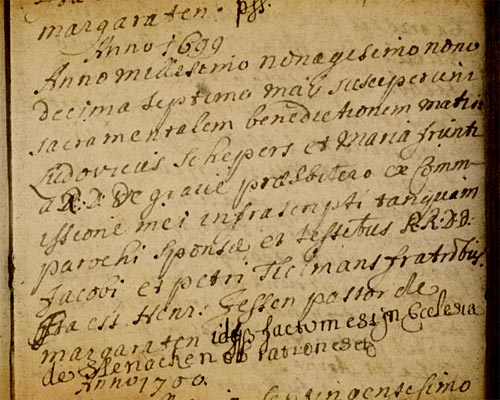 margraten. pss.
Anno 1699
Anno millesimo nonagesimo nono
decima septima maij susceperunt
sacramentalem benedictionem matri
Ludovicus Schepers et Maria
a R. D. De gracie præsbitero ex Comm
issione mei infrascripti tanquam
parochi sponsæ et testibus R.R.D.D.
Jacobi et petri Tielmans fratribus
Ita est Henr: Jessen pastor de
margraten idqz factum est in Ecclesia
de et ratione
Anno 1700.